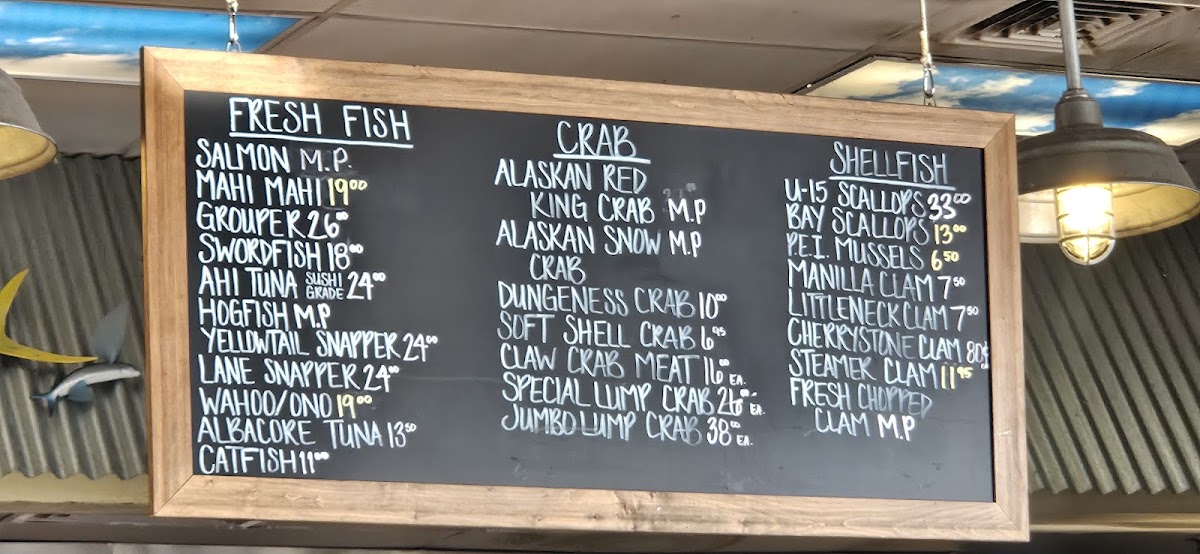 FRESH FISH
SALMON M.P.
MAHI MAHI 19⁰⁰
GROUPER 26⁰⁰
SWORDFISH 18⁰⁰
AHI TUNA SUSHI GRADE 24⁰⁰
HOGFISH M.P
YELLOWTAIL SNAPPER 24⁰⁰
LANE SNAPPER 24⁰⁰
WAHOO/ONO 19⁰⁰
ALBACORE TUNA 13⁵⁰
CATFISH 11⁰⁰
CRAB
ALASKAN RED
KING CRAB M.P
ALASKAN SNOW M.P
CRAB
DUNGENESS CRAB 10⁰⁰
SOFT SHELL CRAB 6⁹⁵
CLAW CRAB MEAT 16⁰⁰ EA.
SPECIAL LUMP CRAB 26⁰⁰ EA.
JUMBO LUMP CRAB 38⁰⁰ EA.
SHELLFISH
U-15 SCALLOPS 33⁰⁰
BAY SCALLOPS 13⁰⁰
P.E.I. MUSSELS 6⁵⁰
MANILLA CLAM 7⁵⁰
LITTLENECK CLAM 7⁵⁰
CHERRYSTONE CLAM 80¢
STEAMER CLAM 11⁹⁵
FRESH CHOPPED
CLAM M.P